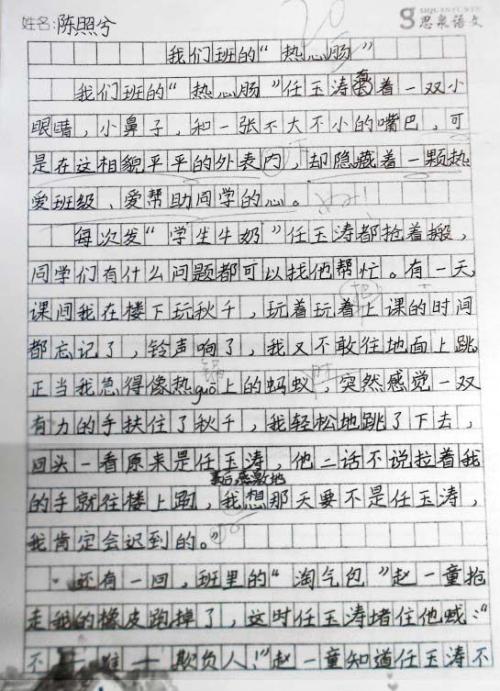 姓名:陈照兮
SIQUANYUWEN
思泉语文
20
我们班的“热心肠”
我们班的“热心肠”任玉涛有着一双小
眼睛，小鼻子，和一张不大不小的嘴巴，可
是在这相貌平平的外表内，却隐藏着一颗热
爱班级、爱帮助同学的心。
每次发“学生牛奶”任玉涛都抢着搬，
同学们有什么问题都可以找他帮忙。有一天，
课间我在楼下玩秋千，玩着玩着上课的时间
把
都忘记了，铃声响了，我又不敢往地面上跳
锅
正当我急得像热guō上的蚂蚁，突然感觉一双
时
有力的手扶住了秋千，我轻松地跳了下去，
回头一看原来是任玉涛，他二话不说拉着我
事后，感激地
的手就往楼上跑，我想那天要不是任玉涛，
我肯定会迟到的。”
还有一回，班里的“淘气包”赵一童抢
走我的橡皮跑掉了，这时任玉涛堵住他喊：“
不——准——欺负人！”赵一童知道任玉涛不